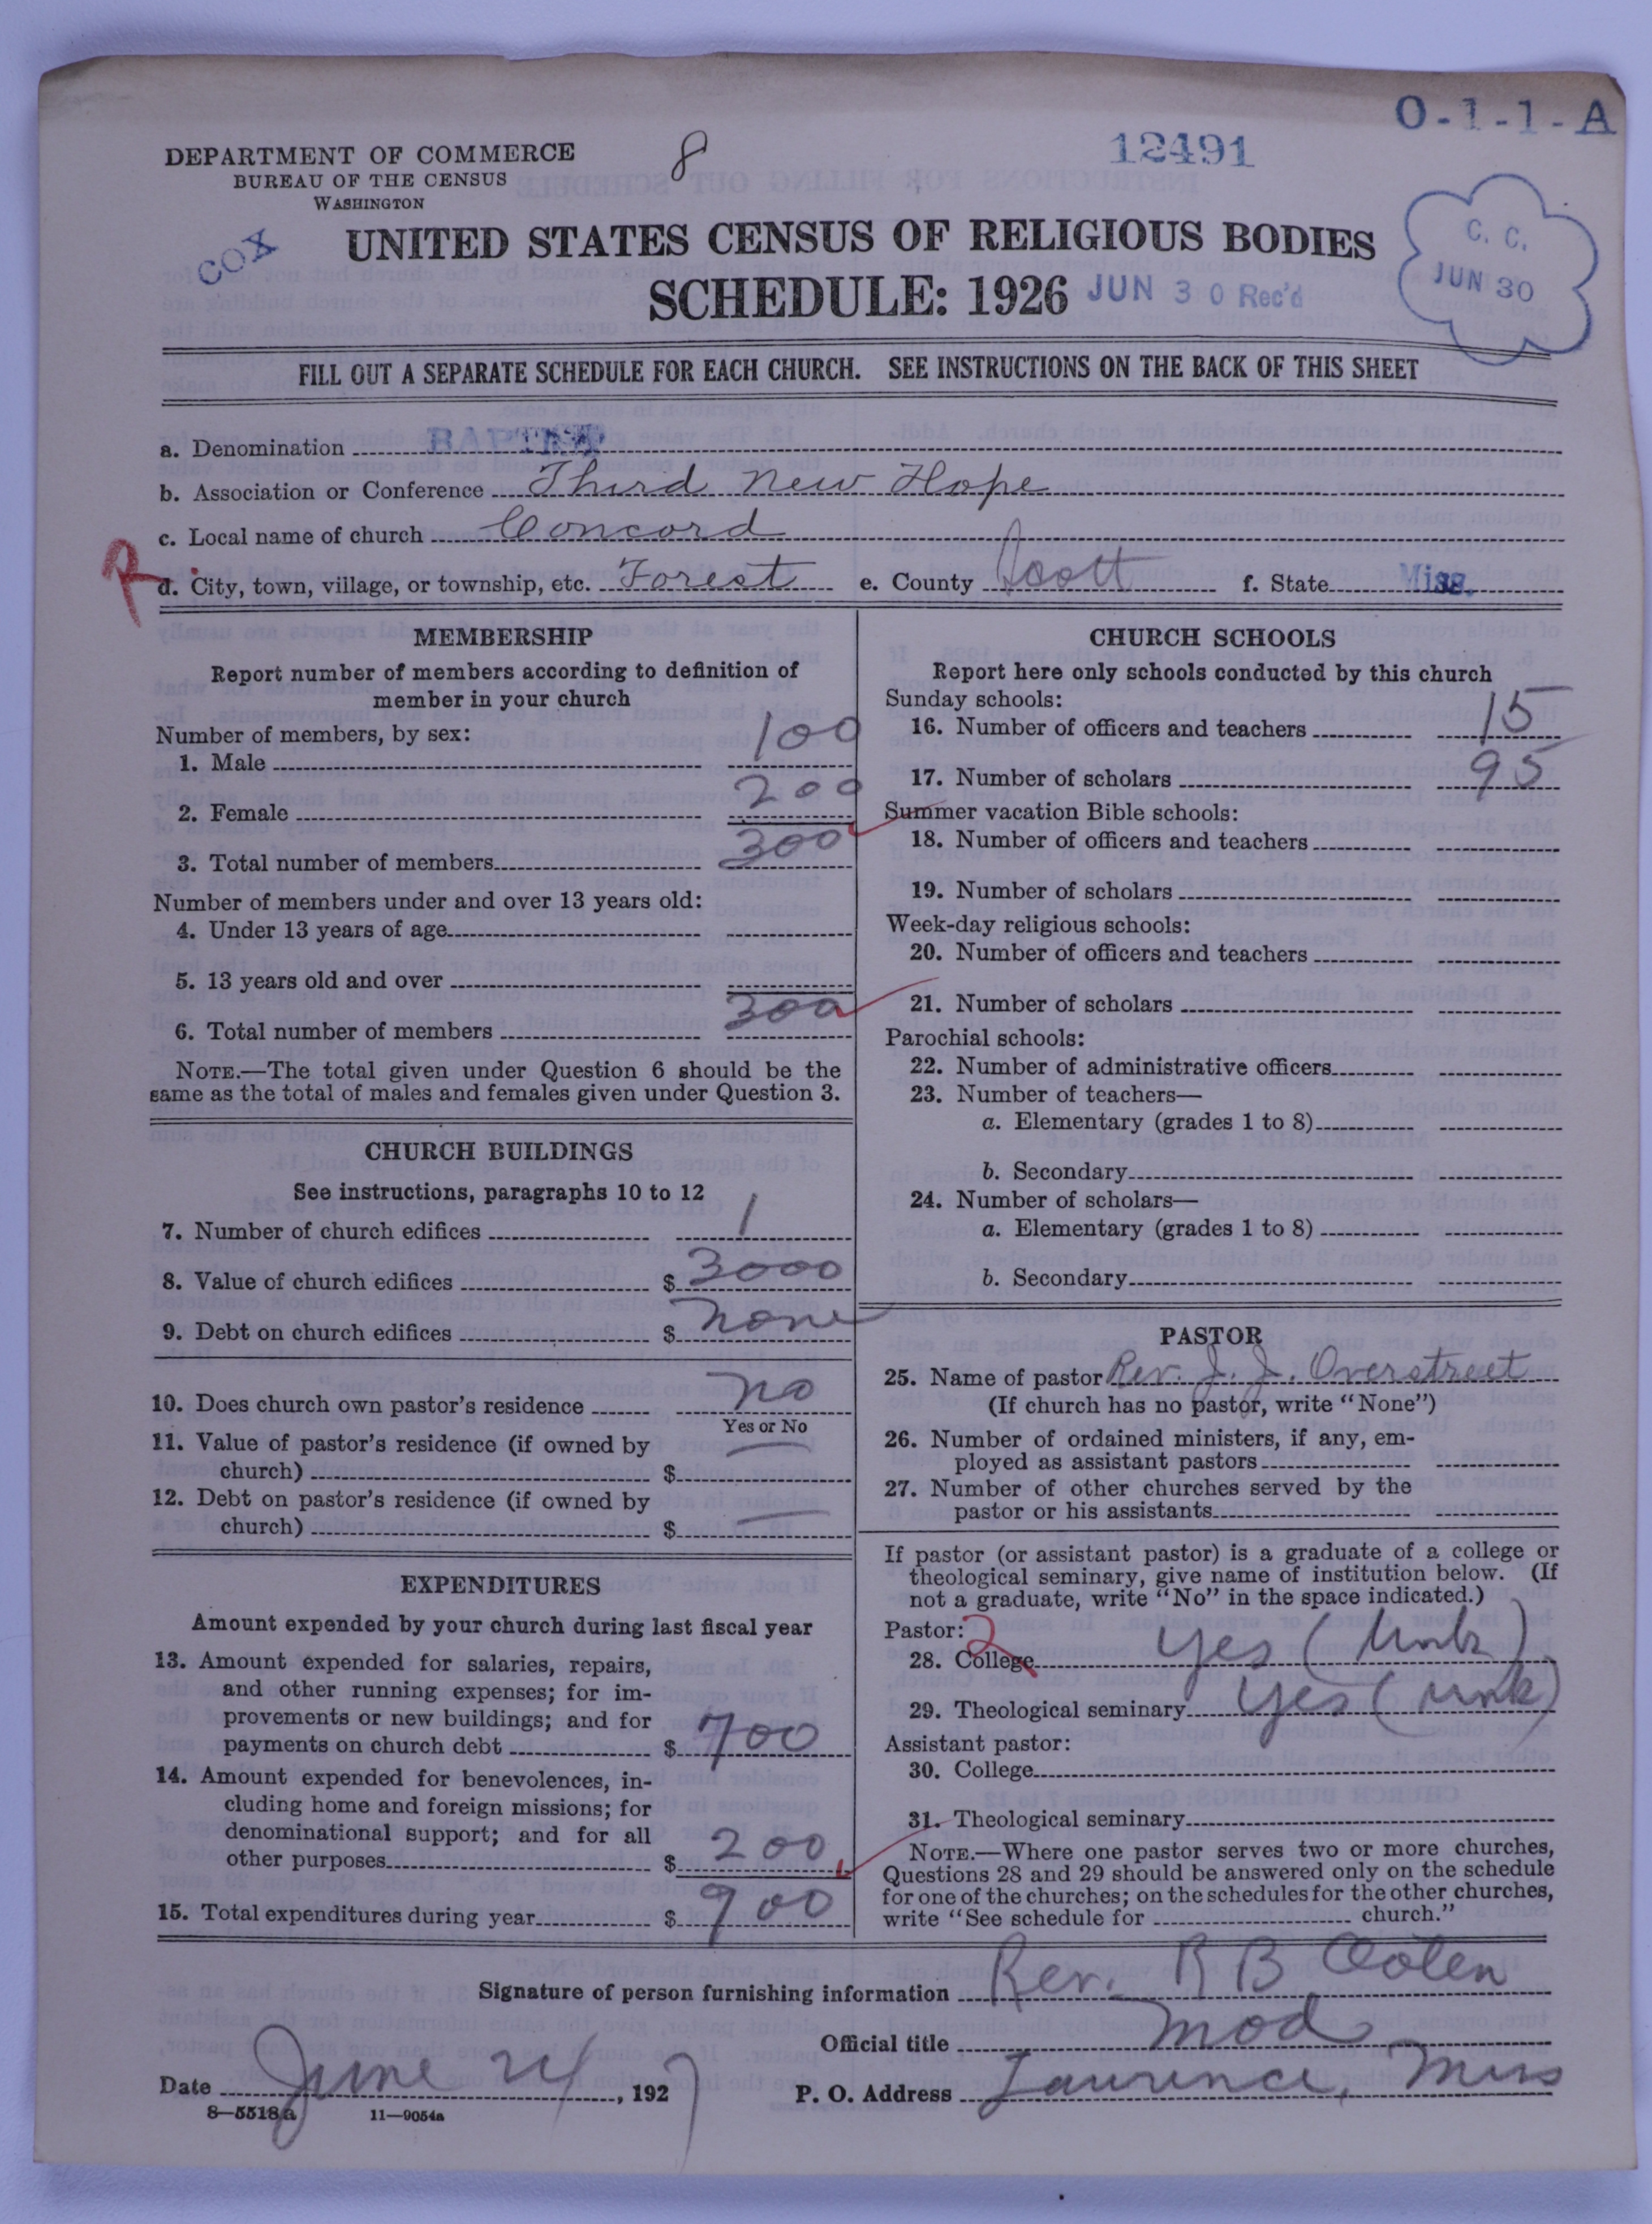 O-1-1-A
12491
8
DEPARTMENT OF COMMERCE
BUREAU OF THE CENSUS
WASHINGTON
COX
UNITED STATES CENSUS OF RELIGIOUS BODIES
SCHEDULE: 1926
JUN 30 Rec'd
C. C.
JUN 30
FILL OUT A SEPARATE SCHEDULE FOR EACH CHURCH. SEE INSTRUCTIONS ON THE BACK OF THIS SHEET
a. Denomination BAPTIST
b. Association or Conference Third New Hope
c. Local name of church Concord
R
d. City, town, village, or township, etc. Forest e. County Scott f. State Miss.
MEMBERSHIP
Report number of members according to definition of
member in your church
Number of members, by sex:
1. Male 100
2. Female 200
3. Total number of members 300
Number of members under and over 13 years old:
4. Under 13 years of age
5. 13 years old and over
6. Total number of members 300
NOTE.—The total given under Question 6 should be the
same as the total of males and females given under Question 3.
CHURCH BUILDINGS
See instructions, paragraphs 10 to 12
7. Number of church edifices 1
8. Value of church edifices $ 3000
9. Debt on church edifices $ none
10. Does church own pastor's residence no
Yes or No
11. Value of pastor's residence (if owned by
church) $ —
12. Debt on pastor's residence (if owned by
church) $ —
EXPENDITURES
Amount expended by your church during last fiscal year
13. Amount expended for salaries, repairs,
and other running expenses; for im-
provements or new buildings; and for
payments on church debt $ 700
14. Amount expended for benevolences, in-
cluding home and foreign missions; for
denominational support; and for all
other purposes $ 200
15. Total expenditures during year $ 900
CHURCH SCHOOLS
Report here only schools conducted by this church
Sunday schools:
16. Number of officers and teachers 15
17. Number of scholars 95
Summer vacation Bible schools:
18. Number of officers and teachers
19. Number of scholars
Week-day religious schools:
20. Number of officers and teachers
21. Number of scholars
Parochial schools:
22. Number of administrative officers
23. Number of teachers—
a. Elementary (grades 1 to 8)
b. Secondary
24. Number of scholars—
a. Elementary (grades 1 to 8)
b. Secondary
PASTOR
25. Name of pastor Rev. J. J. Overstreet
(If church has no pastor, write "None")
26. Number of ordained ministers, if any, em-
ployed as assistant pastors
27. Number of other churches served by the
pastor or his assistants
If pastor (or assistant pastor) is a graduate of a college or
theological seminary, give name of institution below. (If
not a graduate, write "No" in the space indicated.)
Pastor: 2
28. College yes (unk)
29. Theological seminary yes (unk)
Assistant pastor:
30. College
31. Theological seminary
NOTE.—Where one pastor serves two or more churches,
Questions 28 and 29 should be answered only on the schedule
for one of the churches; on the schedules for the other churches,
write "See schedule for church."
Signature of person furnishing information Rev. R B
Official title Mod
Date June 24, 1927 P. O. Address Lawrence, Miss
8—5518a 11—9054a